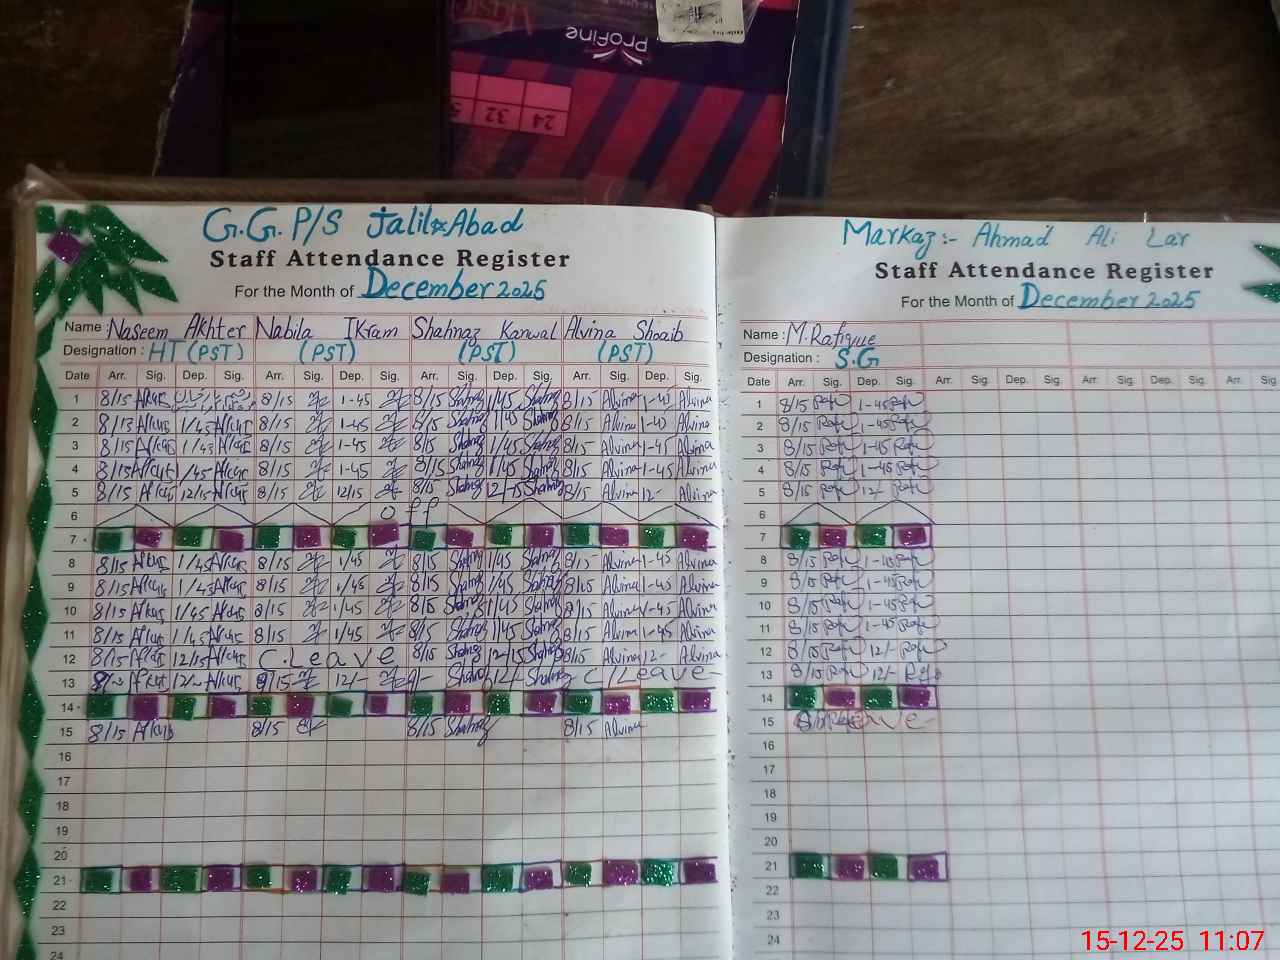 Profine
24 32
G.G. P/S Jalil Abad
Staff Attendance Register
For the Month of December 2025
Name : Naseem Akhter Nabila Ikram Shahnaz Kanwal Alvina Shoaib
Designation : HT (PST) (PST) (PST) (PST)
Date Arr. Sig. Dep. Sig. Arr. Sig. Dep. Sig. Arr. Sig. Dep. Sig. Arr. Sig. Dep. Sig.
1 8/15 8/15 1-45 8/15 Shahnaz 1/45 Shahnaz 8/15 Alvina 1-45 Alvina
2 8/15 1/45 8/15 1-45 8/15 Shahnaz 1/45 Shahnaz 8/15 Alvina 1-45 Alvina
3 8/15 1/45 8/15 1-45 8/15 Shahnaz 1/45 Shahnaz 8/15 Alvina 1-45 Alvina
4 8/15 1/45 8/15 1-45 8/15 Shahnaz 1/45 Shahnaz 8/15 Alvina 1-45 Alvina
5 8/15 12/15 8/15 12/15 8/15 Shahnaz 12/-15 Shahnaz 8/15 Alvina 12- Alvina
6 off
7
8 8/15 1/45 8/15 1/45 8/15 Shahnaz 1/45 Shahnaz 8/15 Alvina 1-45 Alvina
9 8/15 1/45 8/15 1/45 8/15 Shahnaz 1/45 Shahnaz 8/15 Alvina 1-45 Alvina
10 8/15 1/45 8/15 1/45 8/15 Shahnaz 1/45 Shahnaz 8/15 Alvina 1-45 Alvina
11 8/15 1/45 8/15 1/45 8/15 Shahnaz 1/45 Shahnaz 8/15 Alvina 1-45 Alvina
12 8/15 12/15 C.Leave 8/15 Shahnaz 12-15 Shahnaz 8/15 Alvina 12- Alvina
13 12/- 8/15 12/- Shahnaz 12/- Shahnaz C/Leave-
14
15 8/15 8/15 8/15 Shahnaz 8/15 Alvina
16
17
18
19
20
21
22
23
24
Markaz :- Ahmad Ali Lar
Staff Attendance Register
For the Month of December 2025
Name : M.Rafique
Designation : S.G
Date Arr. Sig. Dep. Sig. Arr. Sig. Dep. Sig. Arr. Sig. Dep. Sig. Arr. Sig.
1 8/15 1-45
2 8/15 1-45
3 8/15 1-45
4 8/15 1-45
5 8/15 12/-
6
7
8 8/15 1-45
9 8/15 1-45
10 8/15 1-45
11 8/15 1-45
12 8/15 12/-
13 8/15 12/-
14
15
16
17
18
19
20
21
22
23
24
15-12-25 11:07